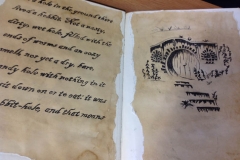 a hole in the ground there
lived a hobbit. Not a nasty,
dirty, wet hole, filled with the
ends of worms and an oozy
smell, nor yet a dry, bare,
sandy hole with nothing in it
sit down on or to eat: it was
hobbit-hole, and that means